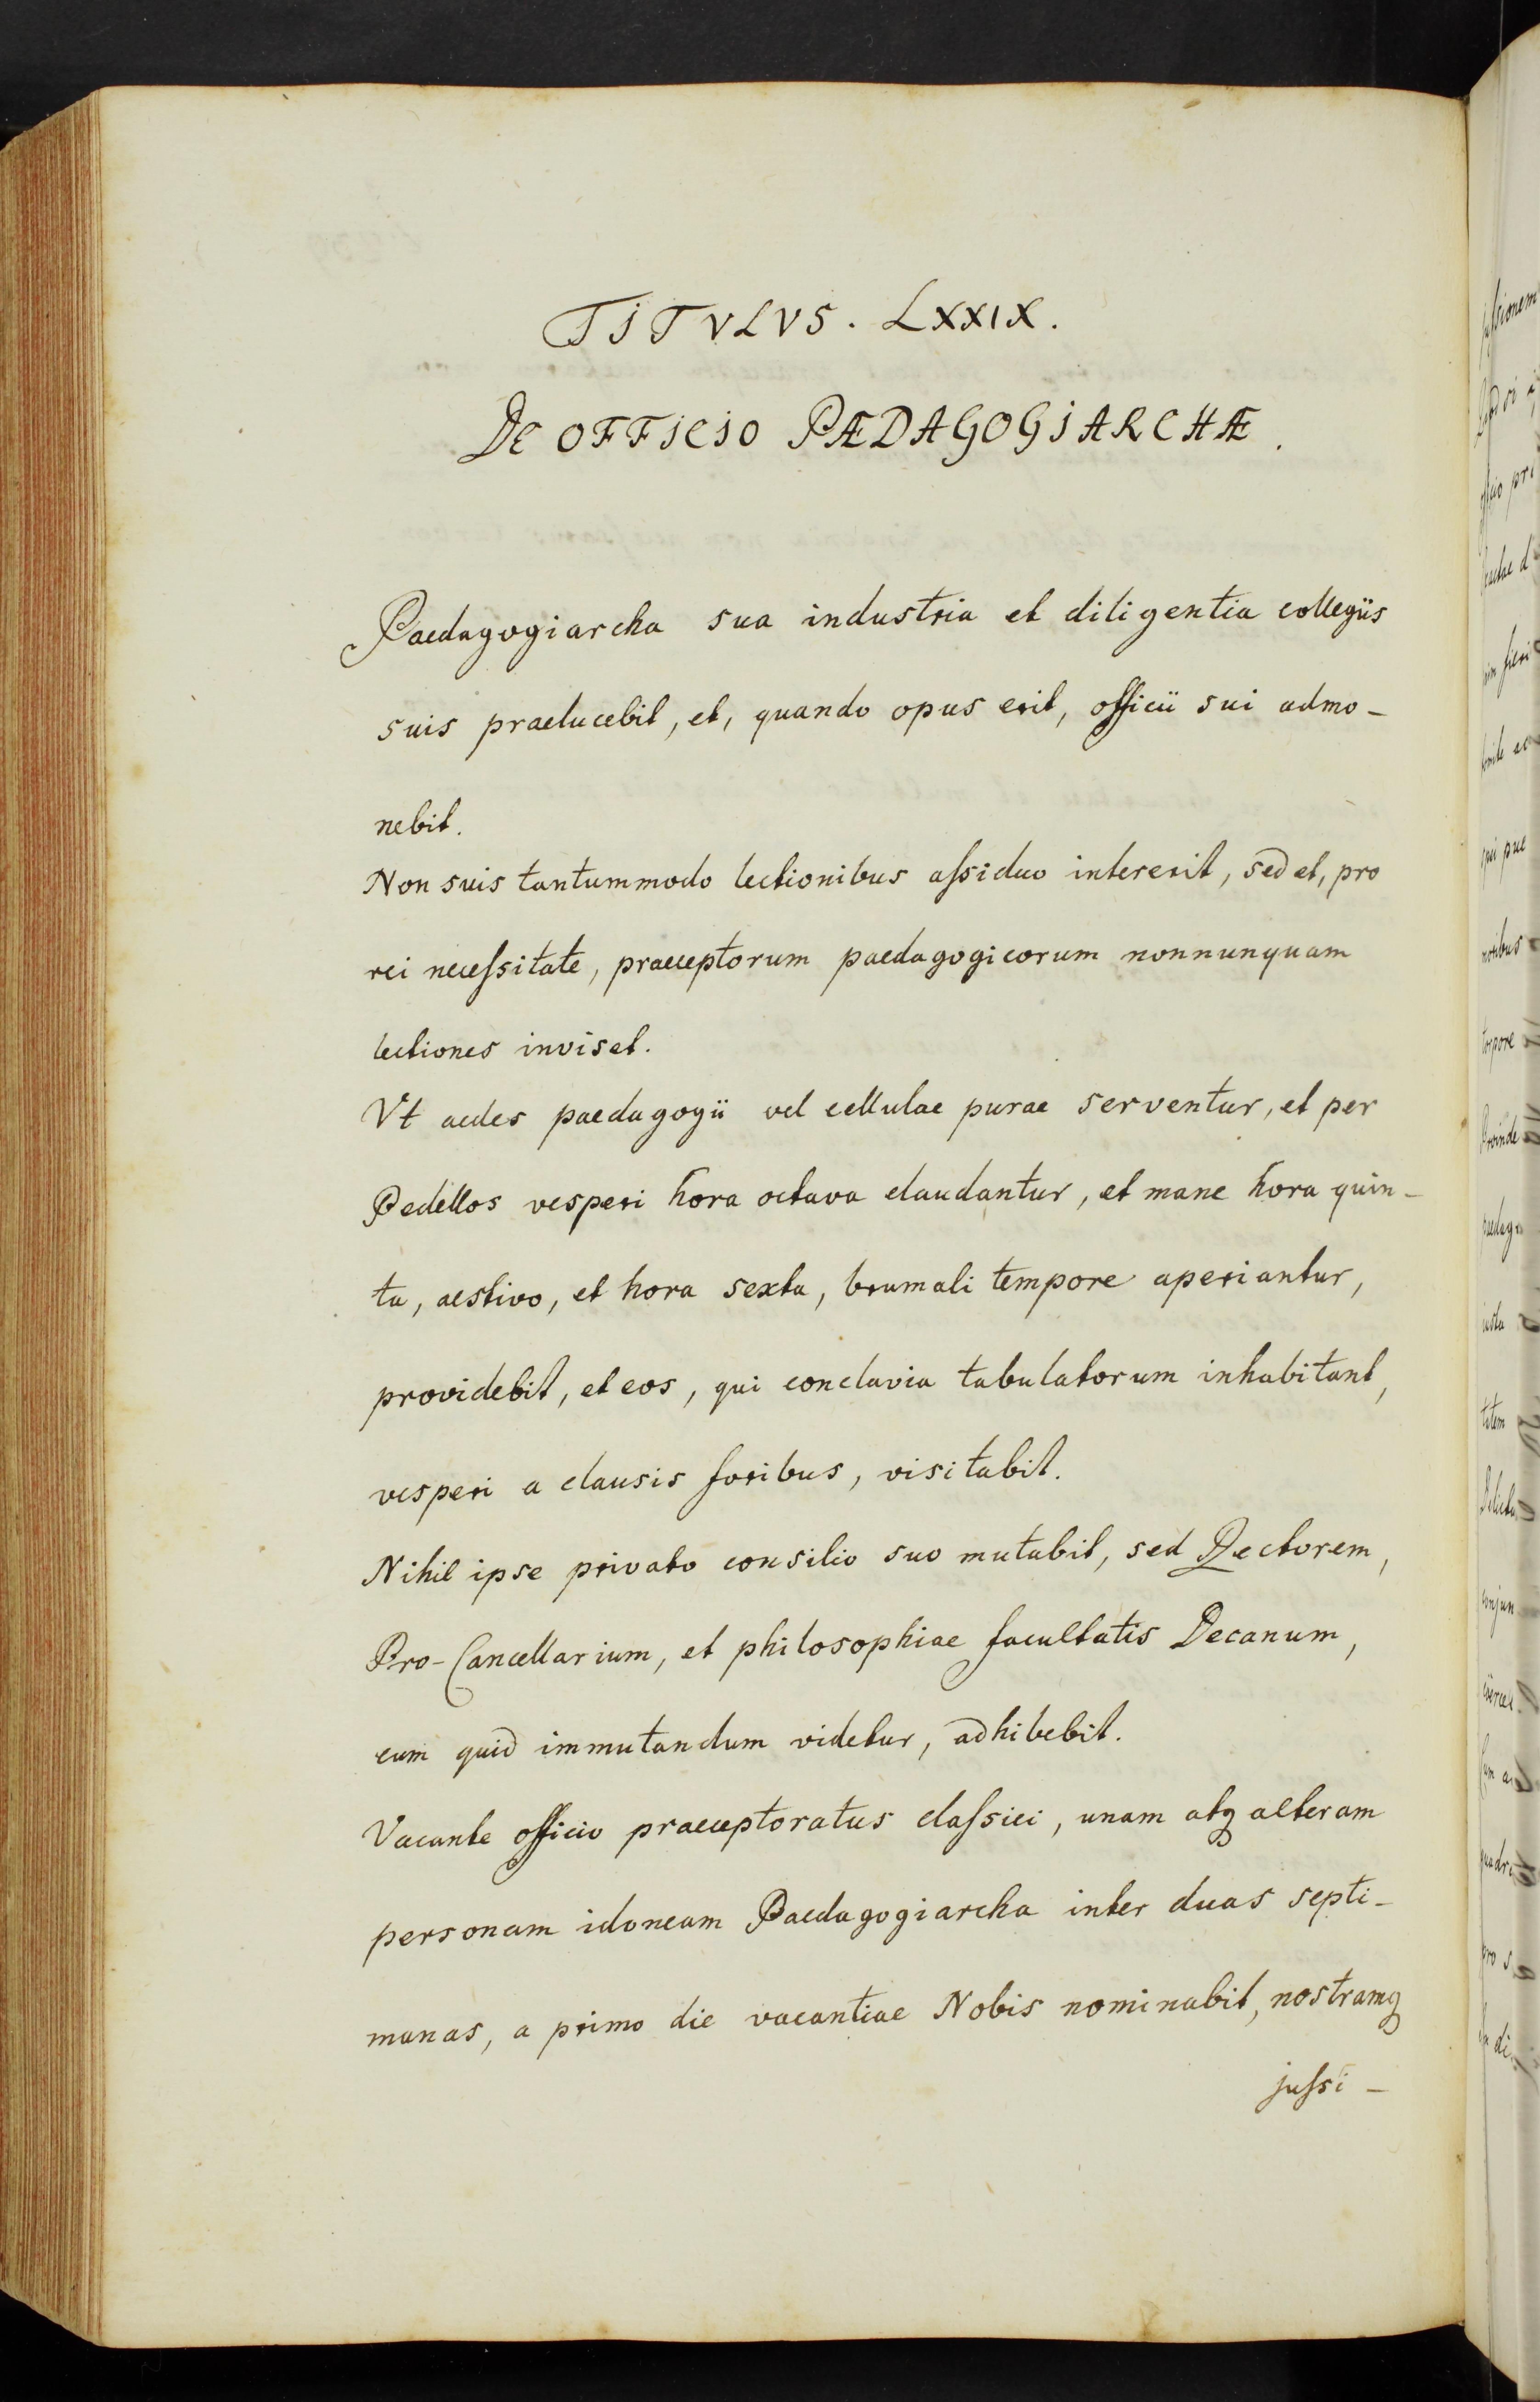 TITVLVS. LXXIX.
DE OFFICIO PÆDAGOGIARCHÆ.
Paedagogiarcha sua industria et diligentia collegiis
suis praelucebit, et, quando opus erit, officii sui admo-
nebit.
Non suis tantummodo lectionibus aſsiduo intererit, sed et, pro
rei neceſsitate, praeceptorum paedagogicorum nonnunquam
lectiones inviset.
Vt aedes paedagogii vel cellulae purae serventur, et per
Pedellos vesperi hora octava claudantur, et mane hora quin-
ta, aestivo, et hora sexta, brumali tempore aperiantur,
providebit, et eos, qui conclavia tabulatorum inhabitant,
vesperi a clausis foribus, visitabit.
Nihil ipse privato consilio suo mutabit, sed Rectorem,
Pro-Cancellarium, et philosophiae facultatis Decanum,
cum quid immutandum videtur, adhibebit.
Vacante officio praeceptoratus claſsici, unam atq alteram
personam idoneam Paedagogiarcha inter duas septi-
manas, a primo die vacantiae Nobis nominabit, nostramq
juſsi-